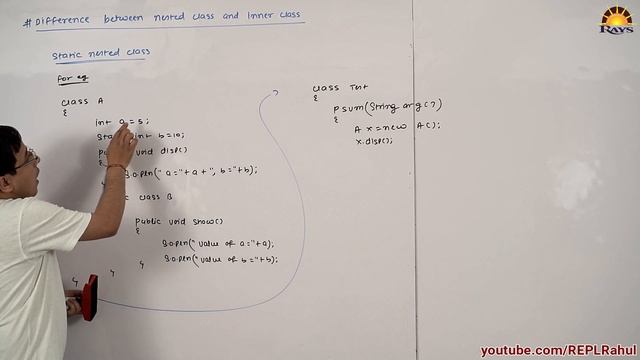 # Difference between nested class and Inner class
Static nested class
For eg
class A
{
int a=5;
int b=10;
void disp()
{
S.o.pln("a="+a+", b="+b);
class B
public void show()
{
S.o.pln("value of a="+a);
S.o.pln("value of b="+b);
}
}
}
class Test
{
psvm(String arg[])
{
A x=new A();
x.disp();
RAYS
youtube.com/REPLRahul